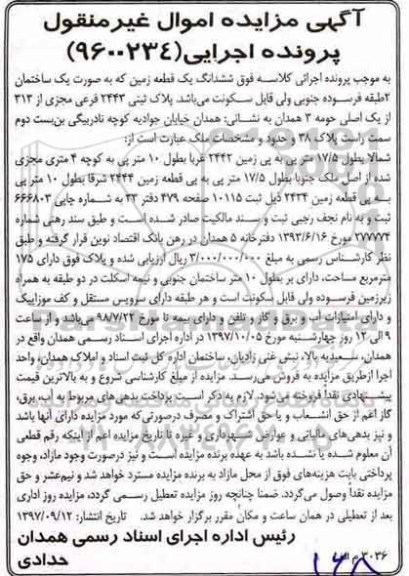 آگهی مزایده اموال غیرمنقول
پرونده اجرایی(۹۶۰۰۲۳۴)
به موجب پرونده اجرائی کلاسه فوق ششدانگ یک قطعه زمین که به صورت یک ساختمان
۲طبقه فرسوده جنوبی ولی قابل سکونت می‌باشد. پلاک ثبتی ۲۴۴۳ فرعی مجزی از ۳۱۳
از یک اصلی حومه ۳ همدان به نشانی: همدان خیابان جوادیه کوچه نادربیگی بن‌بست دوم
سمت راست پلاک ۳۸ و حدود و مشخصات ملک عبارت است از:
شمالا بطول ۱۷/۵ متر پی به پی زمین ۲۴۴۲ غربا بطول ۱۰ متر پی به کوچه ۴ متری مجزی
شده از اصل ملک جنوبا بطول ۱۷/۵ متر پی به پی قطعه زمین ۲۴۴۴ شرقا بطول ۱۰ متر پی
به پی قطعه زمین ۲۴۲۴ ذیل ثبت ۱۰۱۱۵ صفحه ۴۷۹ دفتر ۳۳ به شماره چاپی ۶۶۶۸۰۳
ثبت و به نام نجف رجبی ثبت و سند مالکیت صادر شده است و طبق سند رهنی شماره
۲۷۷۷۷۳ مورخ ۱۳۹۳/۶/۱۶ دفترخانه ۵ همدان در رهن بانک اقتصاد نوین قرار گرفته و طبق
نظر کارشناس رسمی به مبلغ ۳/۰۰۰/۰۰۰/۰۰۰ ریال ارزیابی شده و پلاک فوق دارای ۱۷۵
مترمربع مساحت، دارای بر بطول ۱۰ متر ساختمان جنوبی و نیمه اسکلت در دو طبقه به همراه
زیرزمین فرسوده ولی قابل سکونت است و هر طبقه دارای سرویس مستقل و کف موزاییک
و دارای امتیازات آب و برق و گاز و تلفن و دارای بیمه تا مورخ ۹۸/۷/۲۲ می‌باشد و از ساعت
۹ الی ۱۲ روز چهارشنبه مورخ ۱۳۹۷/۱۰/۰۵ در اداره اجرای اسناد رسمی همدان واقع در
همدان، سعیدیه بالا، نبش غنی زادیان، ساختمان اداره کل ثبت اسناد و املاک همدان، واحد
اجرا ازطریق مزایده به فروش می‌رسد. مزایده از مبلغ کارشناسی شروع و به بالاترین قیمت
پیشنهادی نقداً فروخته می‌شود. لازم به ذکر است پرداخت بدهی‌های مربوط به آب، برق،
گاز اعم از حق انشعاب و یا حق اشتراک و مصرف درصورتی‌که مورد مزایده دارای آنها باشد
و نیز بدهی‌های مالیاتی و عوارض شهرداری و غیره تا تاریخ مزایده اعم از اینکه رقم قطعی
آن معلوم شده یا نشده باشد به عهده برنده مزایده است و نیز درصورت وجود مازاد، وجوه
پرداختی بابت هزینه‌های فوق از محل مازاد به برنده مزایده مسترد خواهد شد و نیم‌عشر و حق
مزایده نقداً وصول می‌گردد. ضمنا چنانچه روز مزایده تعطیل رسمی گردد، مزایده روز اداری
بعد از تعطیلی در همان ساعت و مکان مقرر برگزار خواهد شد. تاریخ انتشار: ۱۳۹۷/۰۹/۱۲
رئیس اداره اجرای اسناد رسمی همدان
۳۰۳۶ م الف
حدادی